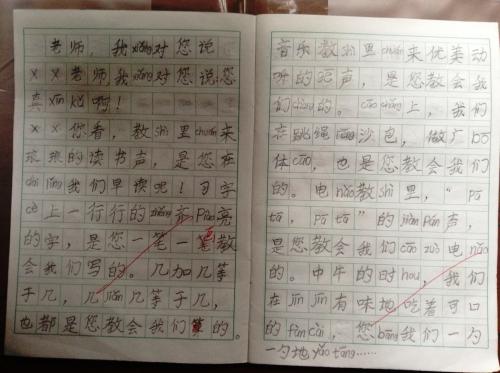 老师，我xiǎng对您说
××老师我xiǎng对您说，您
真xīn kǔ啊！
××你看，教shì里chuán来
琅琅的读书声，是您在
dài lǐng我们早读呢！习字
cè上一行行的zhěng齐piào亮
的字，是您一笔一笔教
会我们写的。几加几等
于几，几jiǎn几等于几，
也都是您教会我们算的。
音乐教shì里chuán来优美动
听的歌声，是您教会我
们chàng的。cāo chǎng上，我们
跳绳 沙包，做广bō
体cāo，也是您教会我们
的。电nǎo教shì里，“pā
tā，pā tā”的jiàn pán声，
是您教会我们cāo zuò电nǎo
的。中午的时hou，我们
在jīn jīn有味地吃着可口
的fàn cài，您bāng我们一勺
一勺地yǎo tāng……